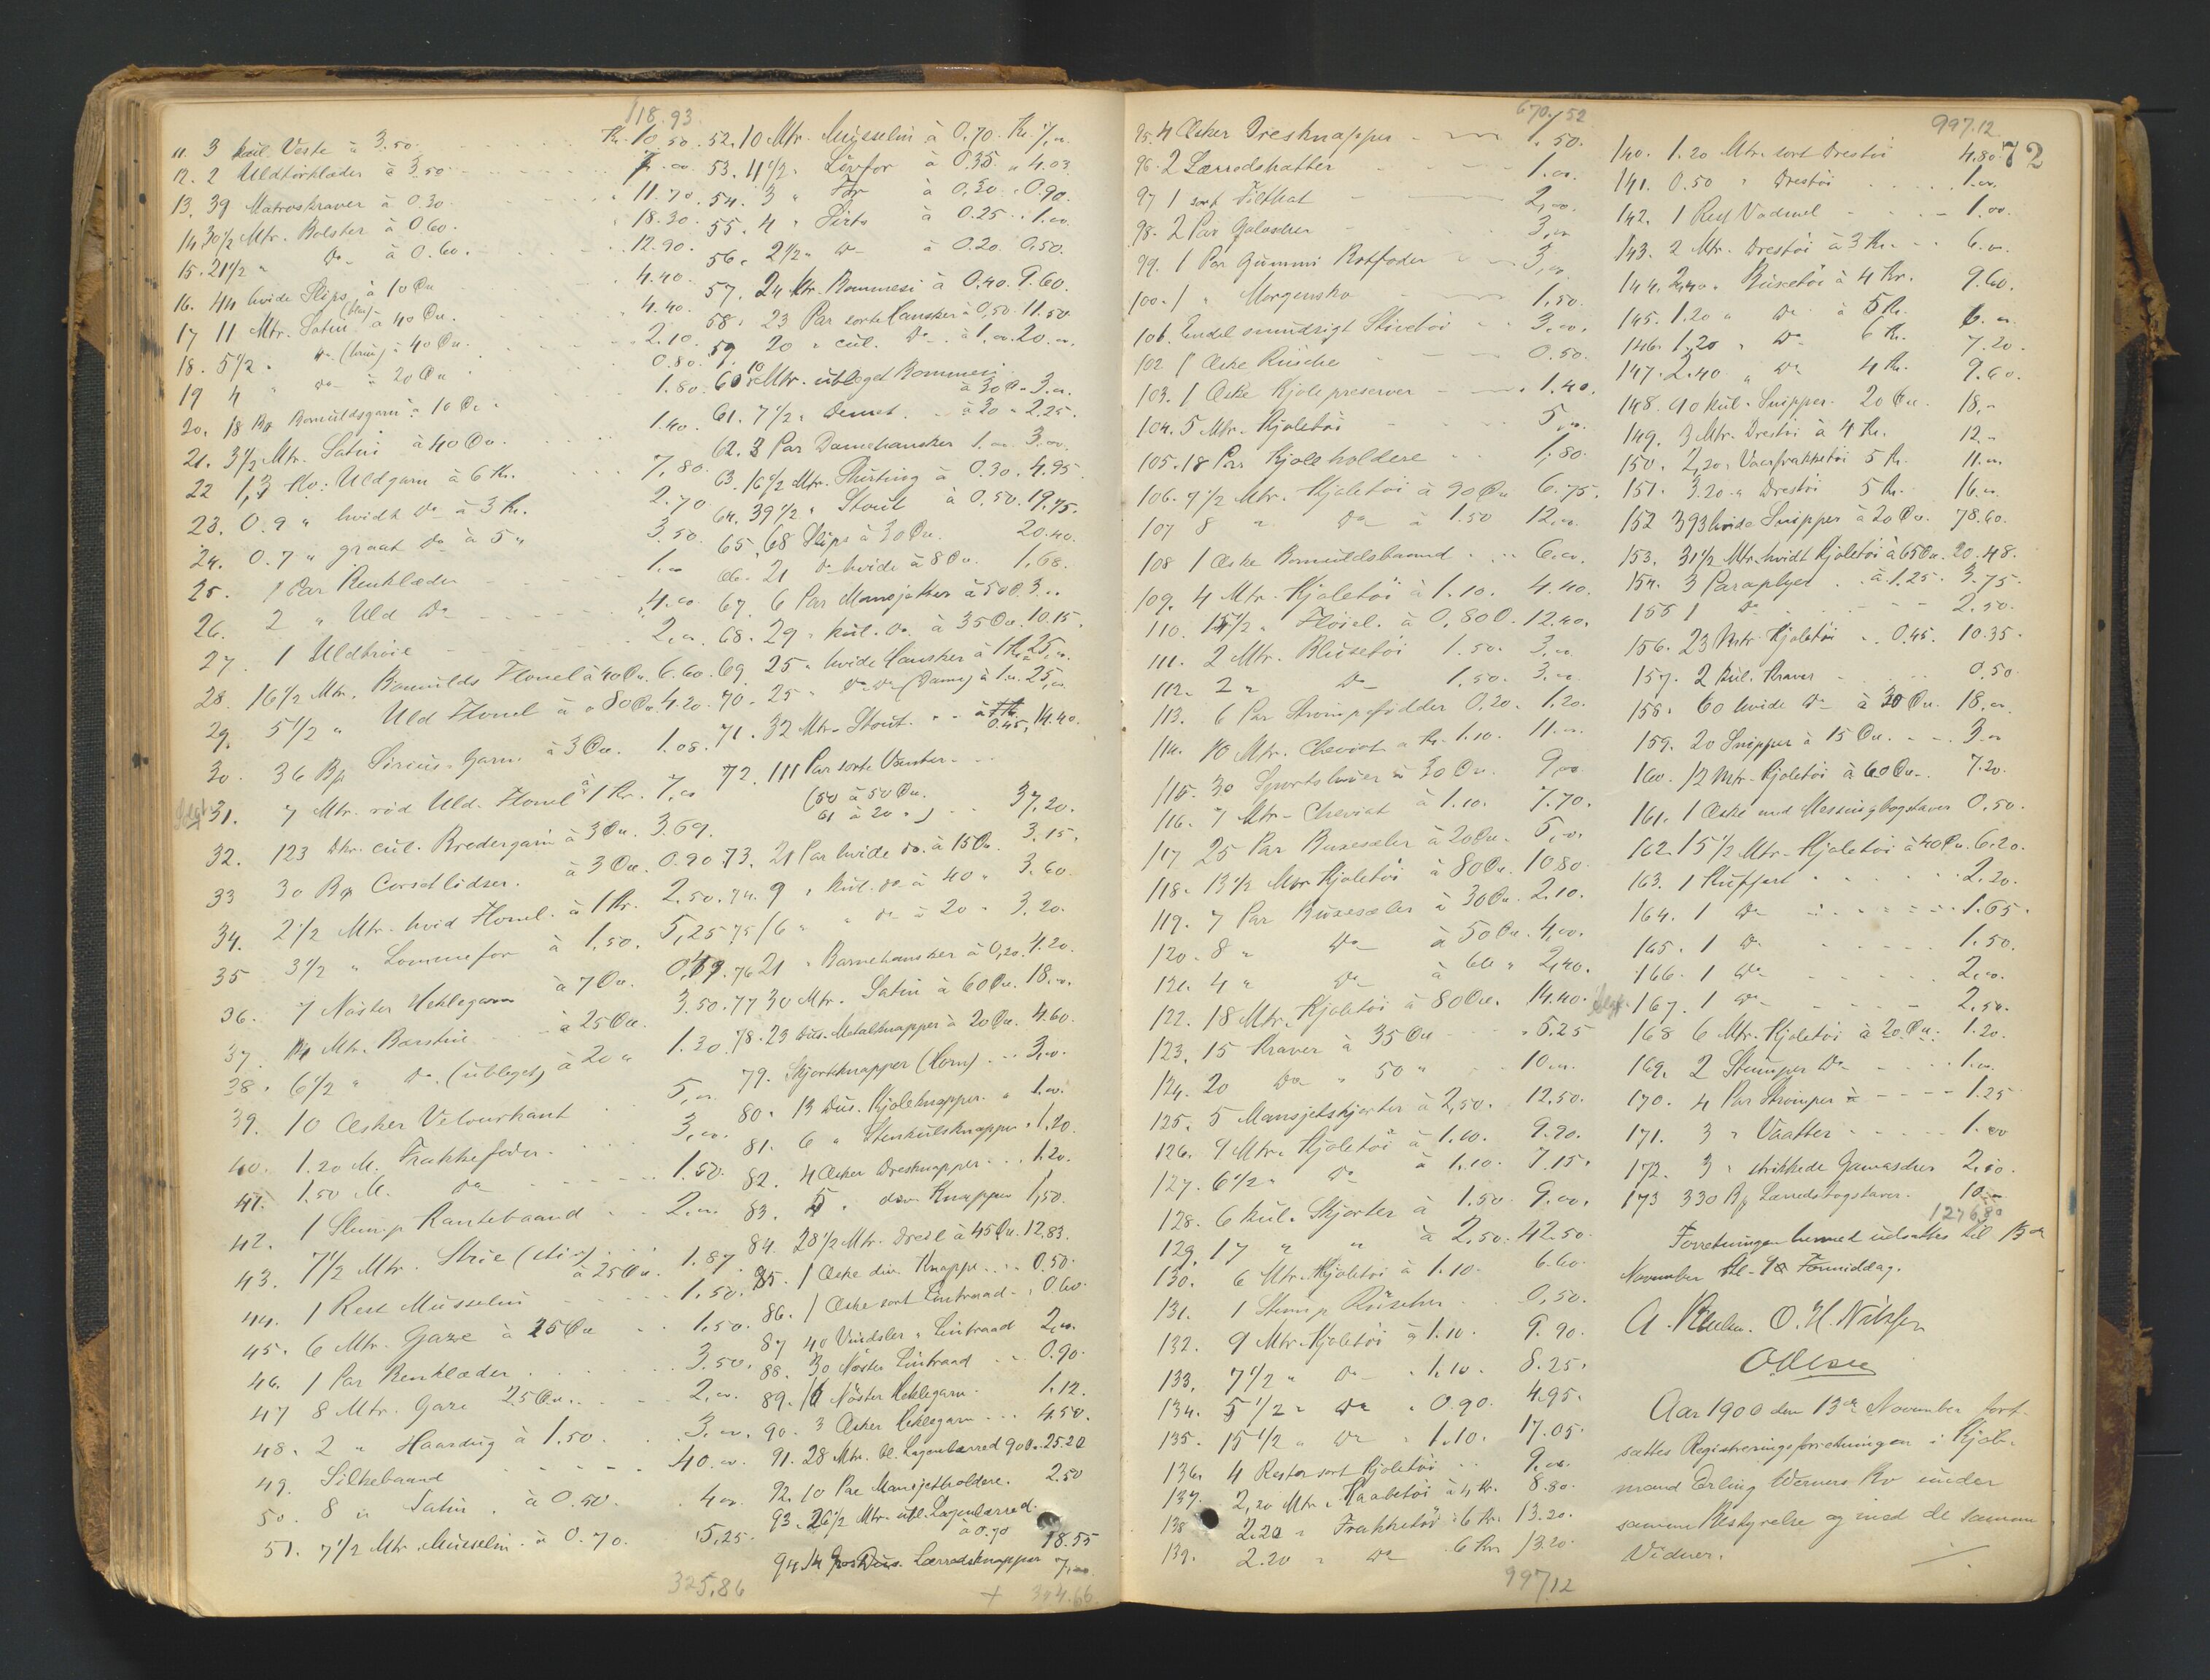 118.93
11. 3 kul. Veste à 3.50 Kr. 10.50
12. 2 Uldtörklæder à 3.50 7.00
13. 39 Matroskraver à 0.30 11.70
14. 30 1/2 Mtr. Bolster à 0.60. 18.30
15. 21 1/2 " Do à 0.60. 12.90
16. 44 hvide Slips à 10 Öre 4.40
17 11 Mtr. Satin (blaa) à 40 Öre. 4.40
18. 5 1/2 " Do (brun) à 40 Öre. 2.10
19 4 " Do à 20 Öre 0.80
20. 18 Bomuldsgarn à 10 Öre 1.80
21. 3 1/2 Mtr. Satin à 40 Öre. 1.40
22 1,3 Ko: Uldgarn à 6 Kr. 7.80
23. 0.9 " hvidt Do à 3 Kr. 2.70
24. 0.7 " graat Do à 5 " 3.50
25. 1 Par Benklæder 1.00
26. 2 " Uld Do 4.00
27. 1 Uldtröie 2.00
28. 16 1/2 Mtr. Bomulds Flonel à 40 Öre. 6.60
29. 5 1/2 " Uld Flonel à 80 Öre 4.20
30. 36 Sirius-Garn à 3 Öre. 1.08
31. 7 Mtr. röd Uld-Flonel à 1 Kr. 7.00
32. 123 Dkr. cul. Brodergarn à 3 Öre. 3.69.
33 30 Corsetlidser. à 3 Öre. 0.90
34. 2 1/2 Mtr. hvid Flonel. à 1 Kr. 2.50
35 3 1/2 " Lommefor à 1.50. 5,25
36. 7 Nöster Heklegarn à 7 Öre. 0,49
37. 14 Mtr. à 25 Öre. 3.50
38. 6 1/2 " Do (ubleget) à 20 " 1.30
39. 10 Æsker Velourkant 5,00
40. 1.20 M. Frakkefoder. 3,00.
41. 1.50 M. Do 1.50.
42. 1 Stump Kantebaand 2.00
43. 7 1/2 Mtr. Strie (stiv) à 25 Öre. 1.87
44. 1 Rest Musselin 1.50.
45. 6 Mtr. Gaze à 25 Öre 1,50.
46. 1 Par Benklæder 3.50.
47 8 Mtr. Gaze 25 Öre. 2.00.
48. 2 " Haardug à 1.50. 3.00.
49. Silkebaand 40.00.
50. 8 m Satin. à 0.50. 4.00
51. 7 1/2 Mtr. Musselin. à 0.70. 5,25.
325,86
52. 10 Mtr. Musselin à 0.70. Kr. 7.00
53. 11 1/2 " Lövfor à 0.35. " 4.03
54. 3 " For à 0.30. " 0.90.
55. 4 " Sirts à 0.25. 1.00
56. 2 1/2 " Do à 0.20. 0.50.
57. 24 Mtr. Bommesi à 0.40. 9.60.
58. 23 Par sorte Hansker à 0,50. 11.50
59 20 " cul. Do à 1.00 20.00.
60. 10 Mtr. ubleget Bommesi à 30 Ö. 3.00.
61. 7 1/2 " Demet. à 30 " 2.25.
62. 3 Par Damehansker 1.00 3.00.
63. 16 1/2 Mtr. Shirting à 0.30. 4.95
64. 39 1/2 " Stout à 0.50. 19.75.
65. 68 Slips à 30 Öre. 20.40.
66. 21 Do hvide à 8 Öre. 1,68.
67. 6 Par Mansjetter à 50 Ö. 3.00
68. 29 " kul. Do. à 35 Öre. 10.15.
69. 25 " hvide Hansker à 1 Kr. 25.00
70. 25 " Do Do (Dame) à 1.00. 25,00
71. 32 Mtr. Stout. à 0.45. 14.40.
72. 111 Par sorte Vanter.
(50 à 50 Öre.
61 à 20 ") 37,20.
73. 21 Par hvide Do. à 15 Ö. 3.15.
74. 9 " kul. Do à 40 " 3.60.
75 16 " " Do à 20 " 3.20.
76 21 " Barnehansker à 0,20. 4.20.
77 30 Mtr. Satin à 60 Öre. 18.00.
78. 23 Dus. Metalknapper à 20 Öre. 4.60.
79. Skjorteknapper (Horn) 3,00.
80. 13 Dus. Kjoleknapper. 1.00.
81. 6 " Stenkulsknapper 1,20.
82. 4 Æsker Dresknapper 1.20.
83. 5 " div. Knapper 1,50.
84. 28 1/2 Mtr. Dreil à 45 Öre. 12.83.
85. 1 Æske div. Knapper 0.50.
86. 1 Æske sort Lintraad 0.60.
87 40 Vindsler " Lintraad 2.00.
88. 30 Nöster Lintraad 0.90.
89. 16 Nöster Heklegarn. 1.12.
90. 3 Æsker Heklegarn 4.50.
91. 28 Mtr. bl. Lagenlærred 90 Ö. 25.20
92. 10 Par Mansjetholdere. 2.50
93. 26 1/2 Mtr. ubl. Lagenlærred. à 0.70 18.55
94 14 Gros Dus. Lærredsknapper 7.00
+ 344.66
670.52
95. 4 Æsker Dresknapper 1.50.
96. 2 Lærredshatter 1.00.
97 1 sort Filthat 2,00.
98. 2 Par Galoscher 3,00
99. 1 Par Gummi Botforer 3,00
100. 1 " Morgensko 1.50.
101. Endel smudsigt Stivetöi 3.00.
102 1 Æske Rüsche 0.50.
103. 1 Æske Kjolepreserver 1.40.
104. 5 Mtr. Kjoletöi 5,00.
105. 18 Par Kjoleholdere 1.80.
106. 7 1/2 Mtr. Kjoletöi à 90 Öre 6.75.
107 8 " Do à 1.50 12.00.
108 1 Æske Bomuldsbaand 6.00.
109. 4 Mtr. Kjoletöi à 1.10. 4.40.
110. 15 1/2 " Flöiel. à 0,80 Ö. 12.40.
111. 2 Mtr. Blusetöi 1.50. 3,00
112. 2 " Do 1.50. 3,00
113. 6 Par Strömpefödder 0,20. 1,20.
114. 10 Mtr. Cheviot à Kr. 1.10. 11.00.
115. 30 Sportsluer à 30 Öre. 9.00
116. 7 Mtr. Cheviot à 1.10. 7.70.
117 25 Par Buxesæler à 20 Öre. 5,00.
118. 13 1/2 Mtr. Kjoletöi à 80 Öre. 10.80.
119. 7 Par Buxesæler à 30 Öre. 2.10.
120. 8 " Do à 50 Öre. 4,00.
121. 4 " Do à 60 " 2,40.
122. 18 Mtr. Kjoletöi à 80 Öre. 14.40.
123. 15 Kraver à 35 Öre 5.25
124. 20 Do " 50 " 10.00.
125. 5 Mansjetskjorter à 2,50. 12.50.
126. 9 Mtr. Kjoletöi à 1.10. 9.90.
127. 6 1/2 " Do à 1.10. 7.15.
128. 6 kul. Skjorter à 1.50. 9.00.
129. 17 " " à 2.50. 42.50.
130. 6 Mtr. Kjoletöi à 1.10. 6.60.
131. 1 Stump Rüscher 0,50.
132. 9 Mtr. Kjoletöi à 1.10. 9.90.
133. 7 1/2 " Do " 1.10. 8.25.
134. 5 1/2 " Do " 0.90. 4.95.
135. 15 1/2 " Do " 1.10. 17.05.
136. 4 Rester sort Kjoletöi 9.00.
137. 2,20 Mtr. Kaabetöi à 4 Kr. 8.80.
138 2.20 " Frakketöi " 6 Kr. 13.20.
139. 2.20 " Do 6 Kr. 13.20.
997.12
997.12
72
140. 1.20 Mtr. sort Drestöi 4.80
141. 0.50 " Drestöi 1.00.
142. 1 Rest Vadmel 1.00.
143. 2 Mtr. Drestöi à 3 Kr. 6.00.
144. 2,40 " Buxetöi à 4 Kr. 9.60.
145. 1.20 " Do à 5 Kr. 6.00
146. 1,20 " Do 6 Kr. 7.20.
147. 2.40 " Do 4 Kr. 9.60.
148. 90 kul. Snipper. 20 Öre. 18,-
149. 3 Mtr. Drestöi à 4 Kr. 12.-
150. 2,20 " Vaarfrakketöi 5 Kr. 11.00
151. 3.20 " Drestöi 5 Kr. 16.00
152 393 hvide Snipper à 20 Öre. 78.60.
153. 31 1/2 Mtr. hvidt Kjoletöi à 65 Öre. 20.48.
154. 3 Paraplyer à 1.25. 3.75.
155 1 Do 2.50.
156. 23 Mtr. Kjoletöi 0.45. 10.35.
157. 2 kul. Kraver 0.50.
158. 60 hvide Do à 30 Öre. 18.00
159. 20 Snipper à 15 Öre. 3.00
160. 12 Mtr. Kjoletöi à 60 Öre. 7.20.
161. 1 Æske med Messingbogstaver 0.50.
162. 15 1/2 Mtr. Kjoletöi à 40 Ö. 6.20.
163. 1 Kuffert 2.20.
164. 1 Do 1.65.
165. 1 Do 1.50.
166. 1 Do 2.00.
167. 1 Do 2.50.
168 6 Mtr. Kjoletöi à 20 Öre. 1.20.
169. 2 Stumper Do 1.00.
170. 4 Par Strömper à 1.25
171. 3 " Vaatter 1.00
172. 3 " strikkede Gamascher 2.10.
173 330 Lærredsbogstaver. 10.-
1276.80
Forretningen hermed udsattes til 13de
November Kl. 9 Formiddag.
O. H. Nilsen
Aar 1900 den 13de November fort-
sattes Registreringsforretningen i Kjöb-
mand Erling Werners Bo under
samme Bestyrelse og med de samme
Vidner.